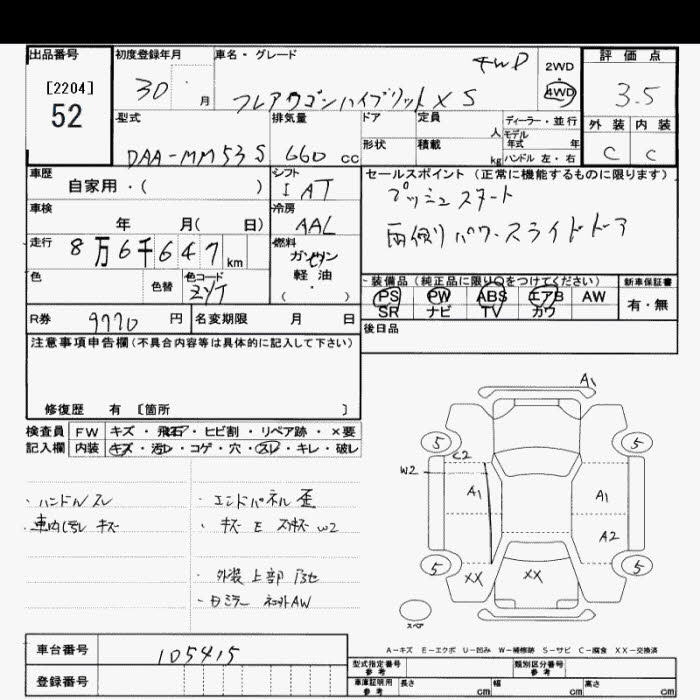 出品番号
[2204]
52
初度登録年月
30 ・ 月
車名・グレード
フレアワゴンハイブリットXS
4WD
2WD
4WD
評価点
3.5
外装 内装
C C
型式
DAA-MM53S
排気量
660 cc
ドア
形状
定員 人
積載 kg
ディーラー・並行
モデル年式 年
ハンドル 左・右
車歴
自家用・( )
車検
年 月( 日)
走行
8万6千647km
色
色替
色コード
ZYT
シフト
IAT
冷房
AAL
燃料
ガソリン
軽油
( ・ )
セールスポイント (正常に機能するものに限ります)
プッシュスタート
両側パワースライドドア
装備品(純正品に限り○をつけてください)
PS PW ABS エアB AW
SR ナビ TV カワ
新車保証書
有・無
後日品
R券 9770 円
名変期限 月 日
注意事項申告欄(不具合内容等は具体的に記入して下さい)
修復歴 有 [箇所 ]
検査員 FW キズ・飛石・ヒビ割・リペア跡・×要
記入欄 内装 キズ・汚レ・コゲ・穴・スレ・キレ・破レ
・ハンドルスレ
・車内汚レ キズ
・エンドパネル歪
・キズE スリキズW2
・外装上部
・日ミラー ネ外AW
A1
5 5
C2
W2
A1 A1
A2
5 5
XX XX
スペア
A-キズ E-エクボ U-凹み W-補修跡 S-サビ C-腐食 XX-交換済
車台番号 105415
登録番号
型式指定番号 参考
類別区分番号 参考
車庫証明用 参考
長さ cm 幅 cm 高さ cm